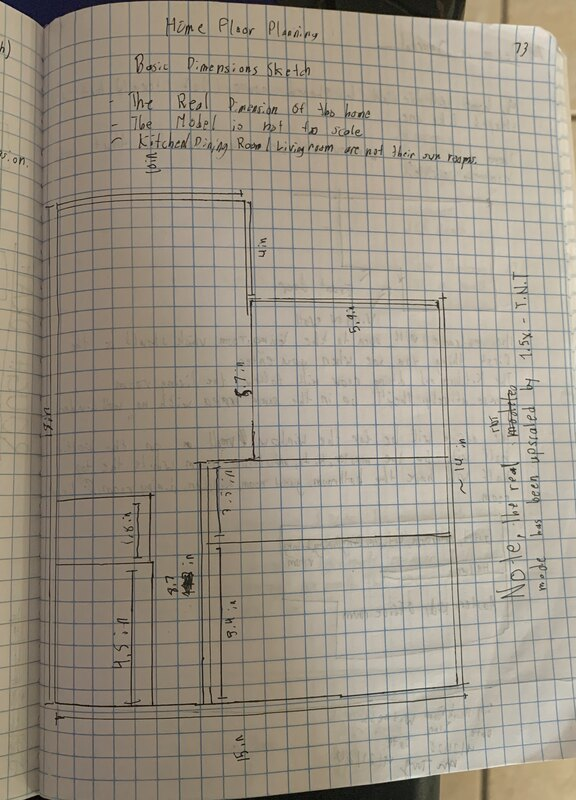 Home Floor Planning
73
Basic Dimensions Sketch
- The Real Dimension of the home
- The Model is not to scale
- Kitchen/Dining Room/Livingroom are not their own rooms.
10in
4in
5.9in
18in
~ 14 in
1.8in
8.7 in
4.5 in
15in
Note, the real
mode has been upscaled by 1.5x - T.N.T